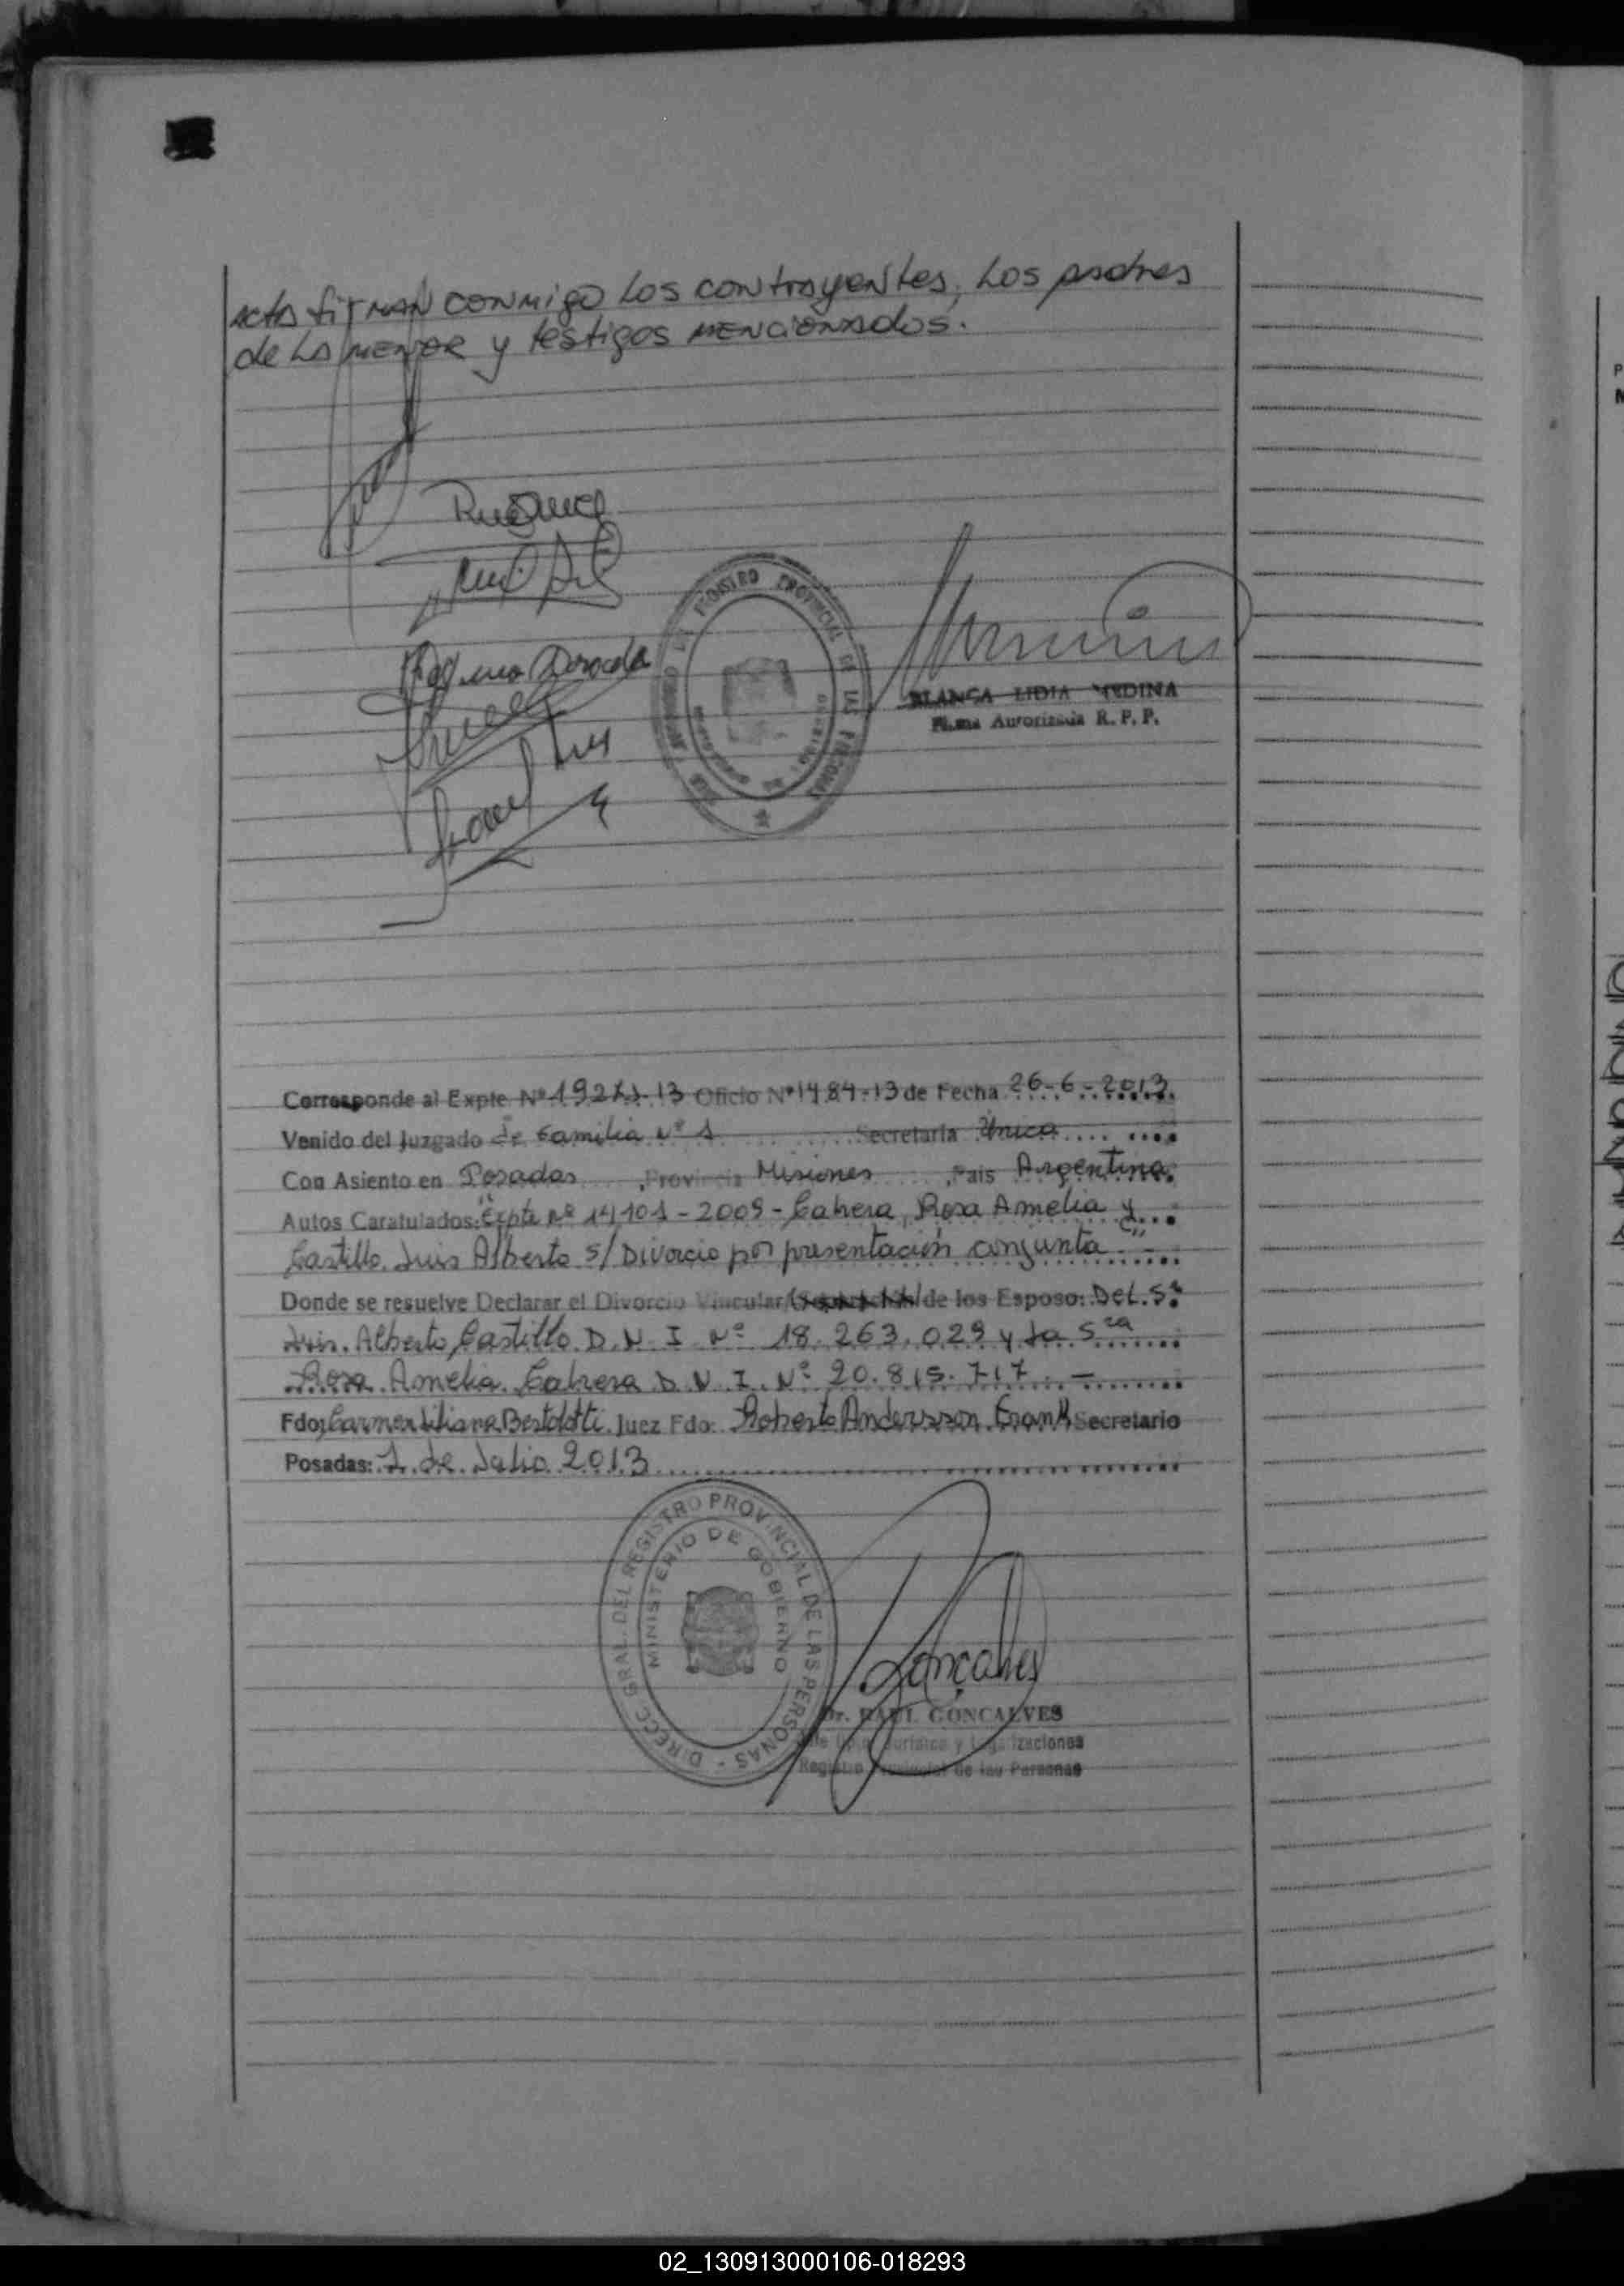 Acta firman conmigo los contrayentes, los padres
de la menor y testigos mencionados.
REGISTRO PROVINCIAL DE LAS PERSONAS
BLANCA LIDIA MEDINA
Firma Autorizada R. P. P.
Corresponde al Expte. Nº 13 Oficio Nº 1484-13 de Fecha 26-6-2013
Venido del Juzgado de Familia Nº 1 Secretaría Única
Con Asiento en Posadas, Provincia Misiones, País Argentina
Autos Caratulados: "Expte Nº 14101-2009 - Cabrera, Rosa Amelia y
Castillo, Luis Alberto s/ Divorcio por presentación conjunta" -
Donde se resuelve Declarar el Divorcio Vincular de los Esposo: Del Sr
Luis Alberto Castillo D.N.I Nº 18.263.029 y la Sra
Rosa Amelia Cabrera D.N.I. Nº 20.815.717. -
Fdo: Carmen Liliana Bertolotti Juez Fdo: Roberto Andersson Frank Secretario
Posadas: 1 de Julio 2013
DIRECC. GRAL. DEL REGISTRO PROVINCIAL DE LAS PERSONAS -
MINISTERIO DE GOBIERNO
Goncalves
Dr. RAUL GONCALVES
Jurídica y Legalizaciones
Registro Provincial de las Personas
02_130913000106-018293